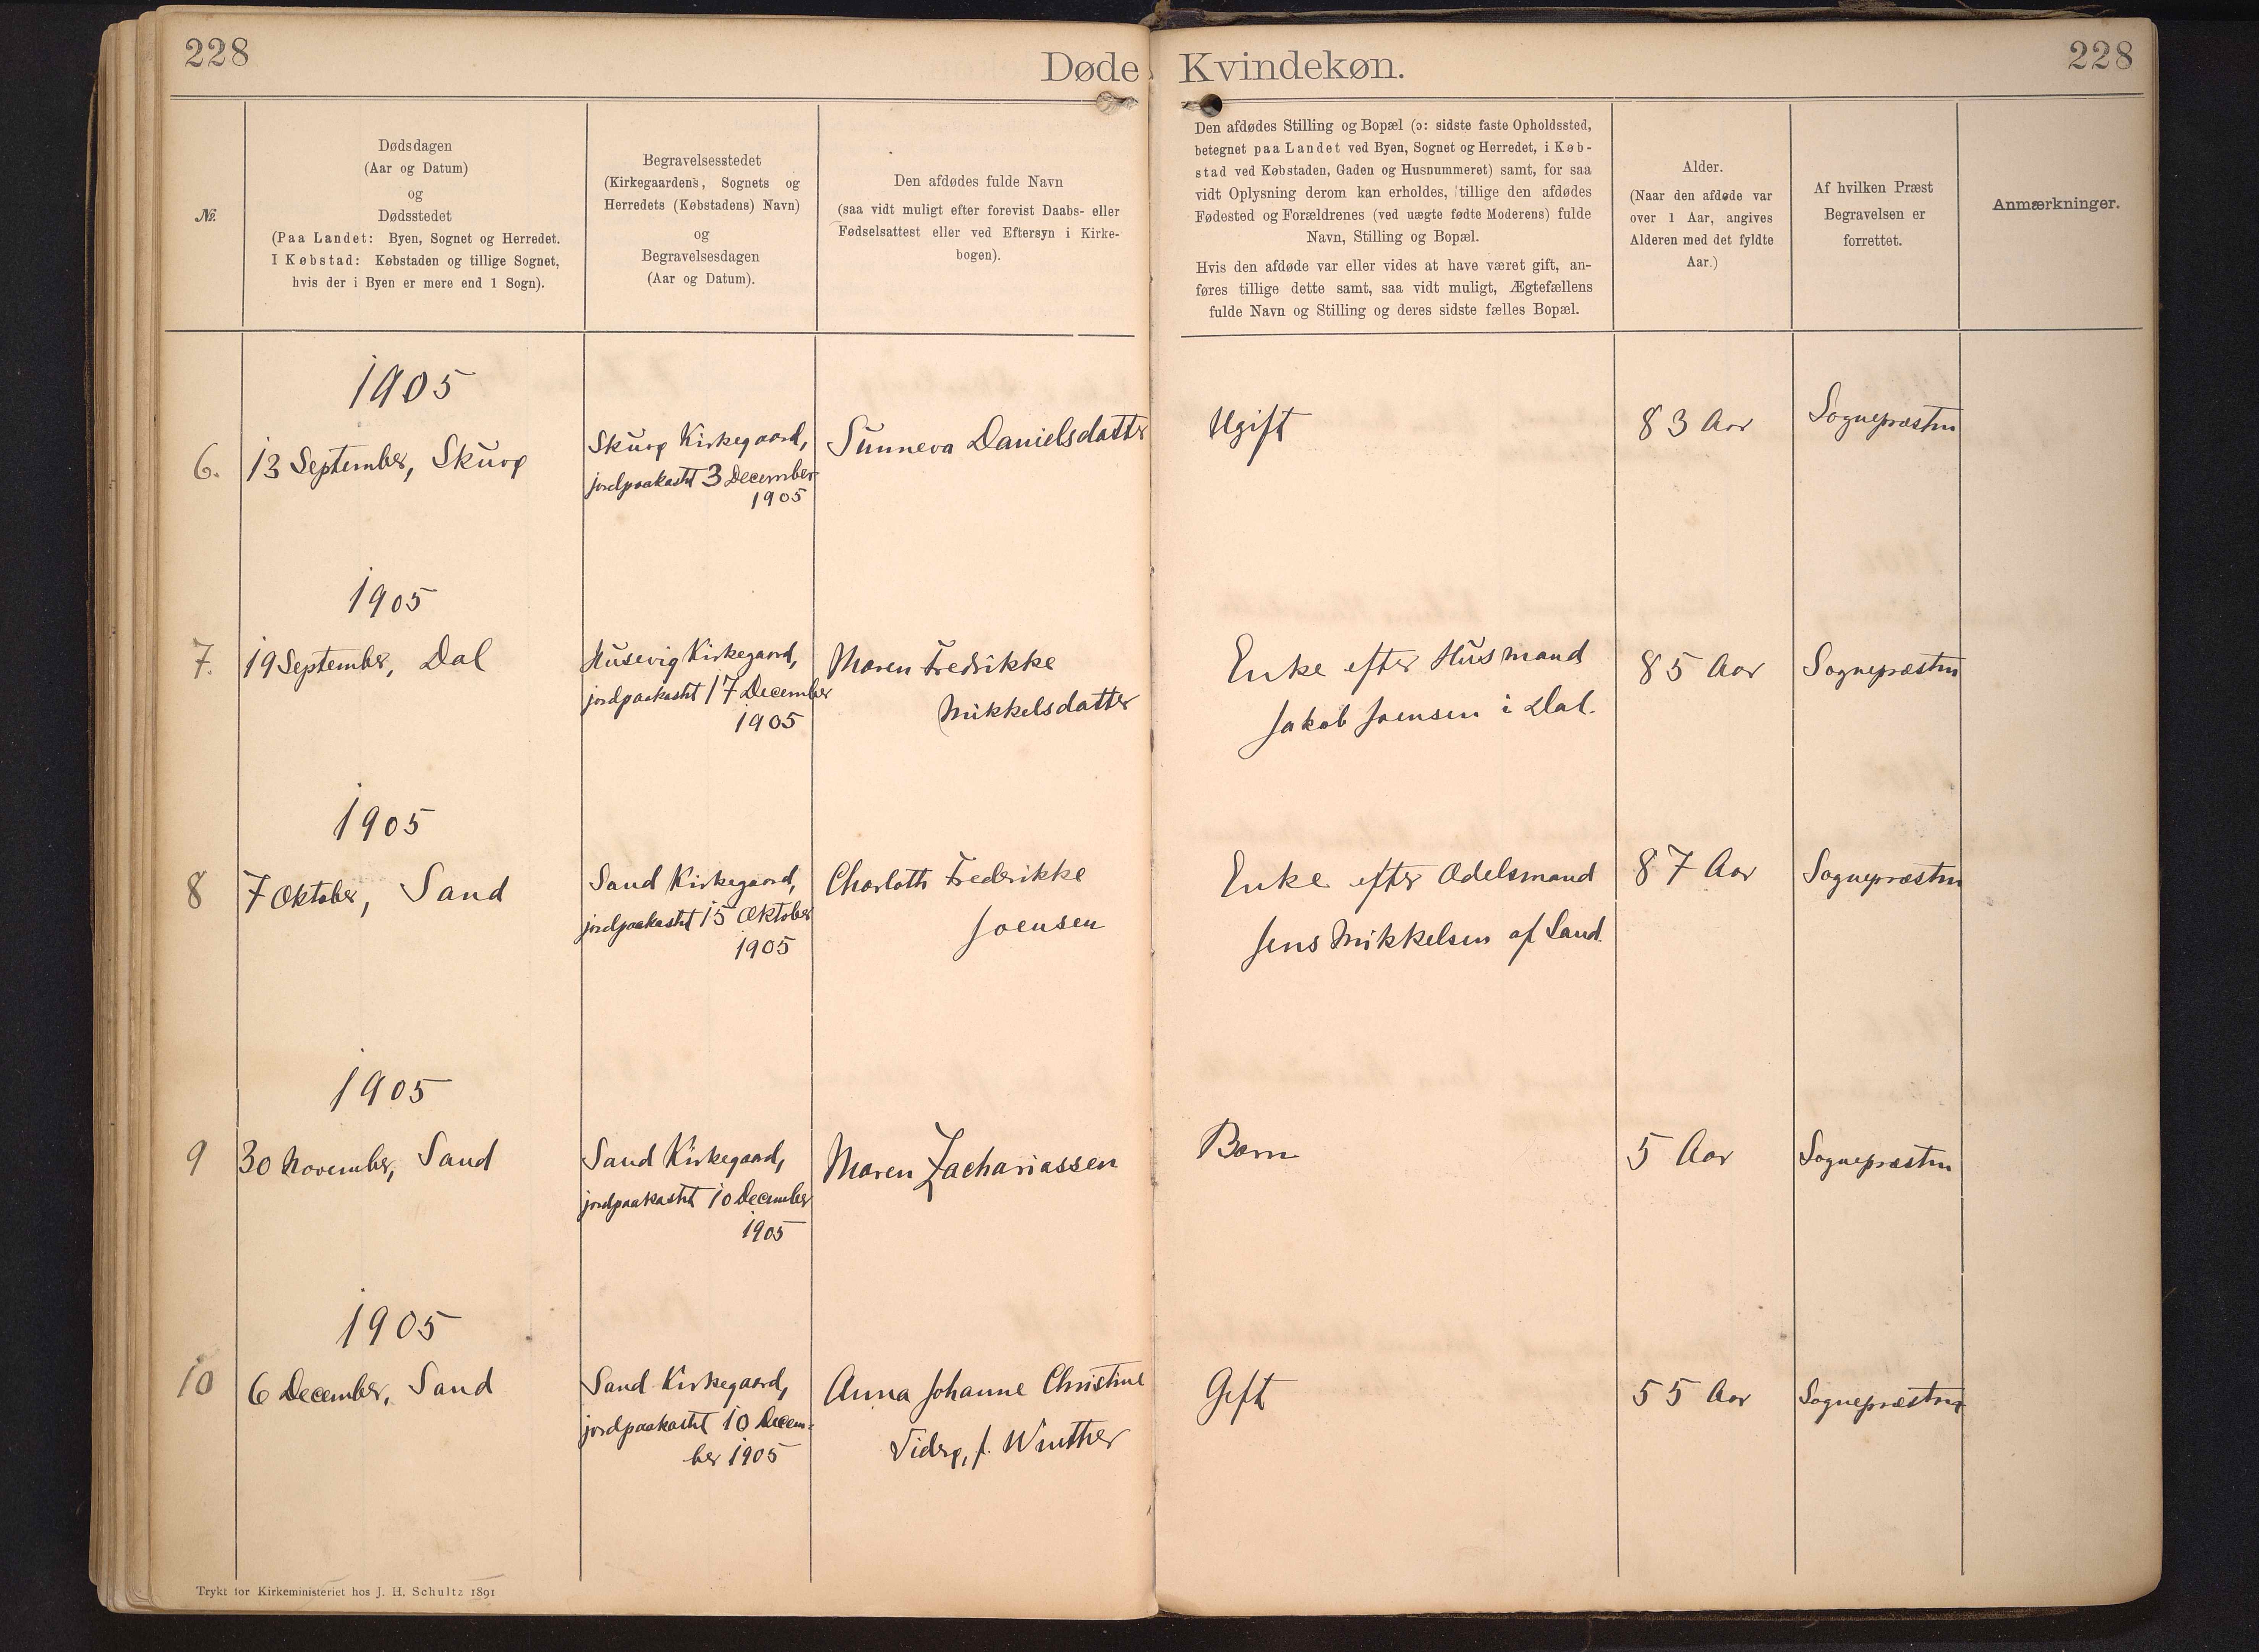 228
Døde Kvindekøn.
228
№.
Dødsdagen
(Aar og Datum)
og
Dødsstedet
(Paa Landet: Byen, Sognet og Herredet.
I Købstad: Købstaden og tillige Sognet,
hvis der i Byen er mere end 1 Sogn).
Begravelsesstedet
(Kirkegaardens, Sognets og
Herredets (Købstadens) Navn)
og
Begravelsesdagen
(Aar og Datum).
Den afdødes fulde Navn
(saa vidt muligt efter forevist Daabs- eller
Fødselsattest eller ved Eftersyn i Kirke-
bogen).
Den afdødes Stilling og Bopæl (ɔ: sidste faste Opholdssted,
betegnet paa Landet ved Byen, Sognet og Herredet, i Køb-
stad ved Købstaden, Gaden og Husnummeret) samt, for saa
vidt Oplysning derom kan erholdes, tillige den afdødes
Fødested og Forældrenes (ved uægte fødte Moderens) fulde
Navn, Stilling og Bopæl.
Hvis den afdøde var eller vides at have været gift, an-
føres tillige dette samt, saa vidt muligt, Ægtefællens
fulde Navn og Stilling og deres sidste fælles Bopæl.
Alder.
(Naar den afdøde var
over 1 Aar, angives
Alderen med det fyldte
Aar.)
Af hvilken Præst
Begravelsen er
forrettet.
Anmærkninger.
1905
6.
13 September, Skuvø
Skuvø Kirkegaard,
jordpaakastet 3 December
1905
Sunneva Danielsdatter
Ugift
83 Aar
Sognepræsten
1905
7.
19 September, Dal
Husevig Kirkegaard,
jordpaakastet 17 December
1905
Maren Fredrikke
Mikkelsdatter
Enke efter Husmand
Jakob Joensen i Dal.
85 Aar
Sognepræsten
1905
8
7 Oktober, Sand
Sand Kirkegaard,
jordpaakastet 15 Oktober
1905
Charlotte Frederikke
Joensen
Enke efter Odelsmand
Jens Mikkelsen af Sand.
87 Aar
Sognepræsten
1905
9
30 November, Sand
Sand Kirkegaard,
jordpaakastet 10 December
1905
Maren Zachariassen
Barn
5 Aar
Sognepræsten
1905
10
6 December, Sand
Sand Kirkegaard,
jordpaakastet 10 Decem-
ber 1905
Anna Johanne Christine
Viderø, f. Winther
Gift
55 Aar
Sognepræsten
Trykt for Kirkeministeriet hos J. H. Schultz 1891